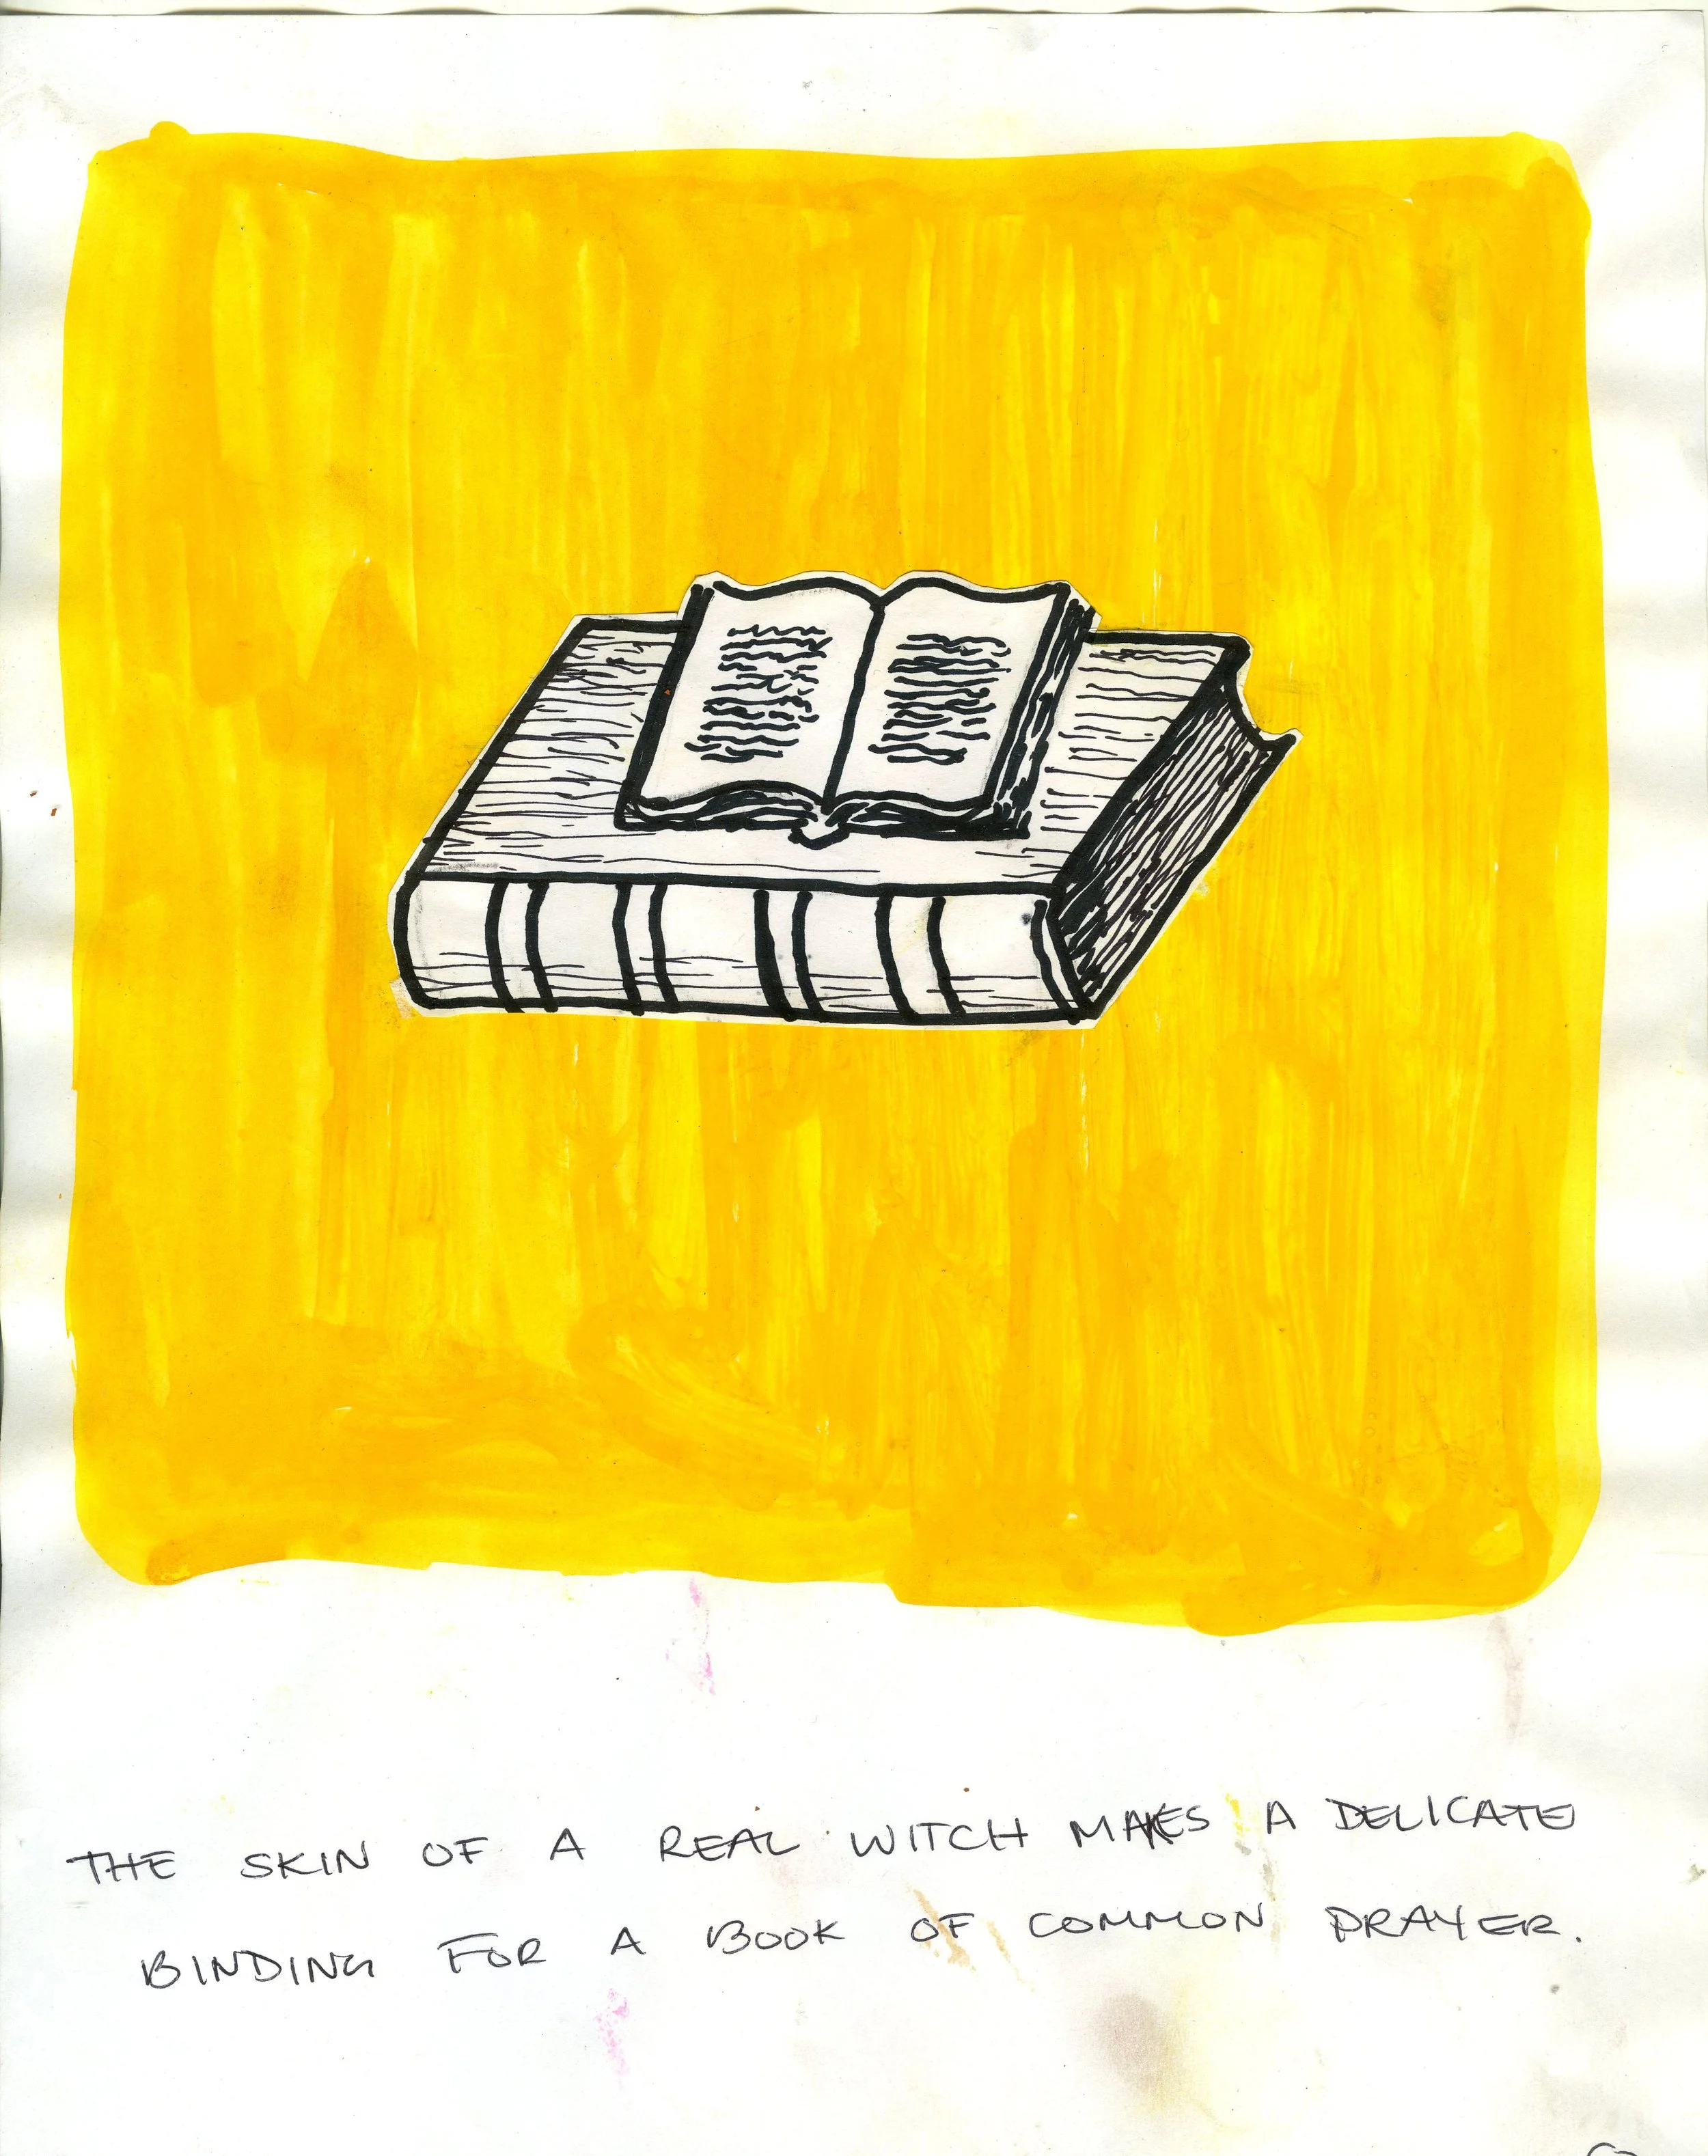 THE SKIN OF A REAL WITCH MAKES A DELICATE
BINDING FOR A BOOK OF COMMON PRAYER.